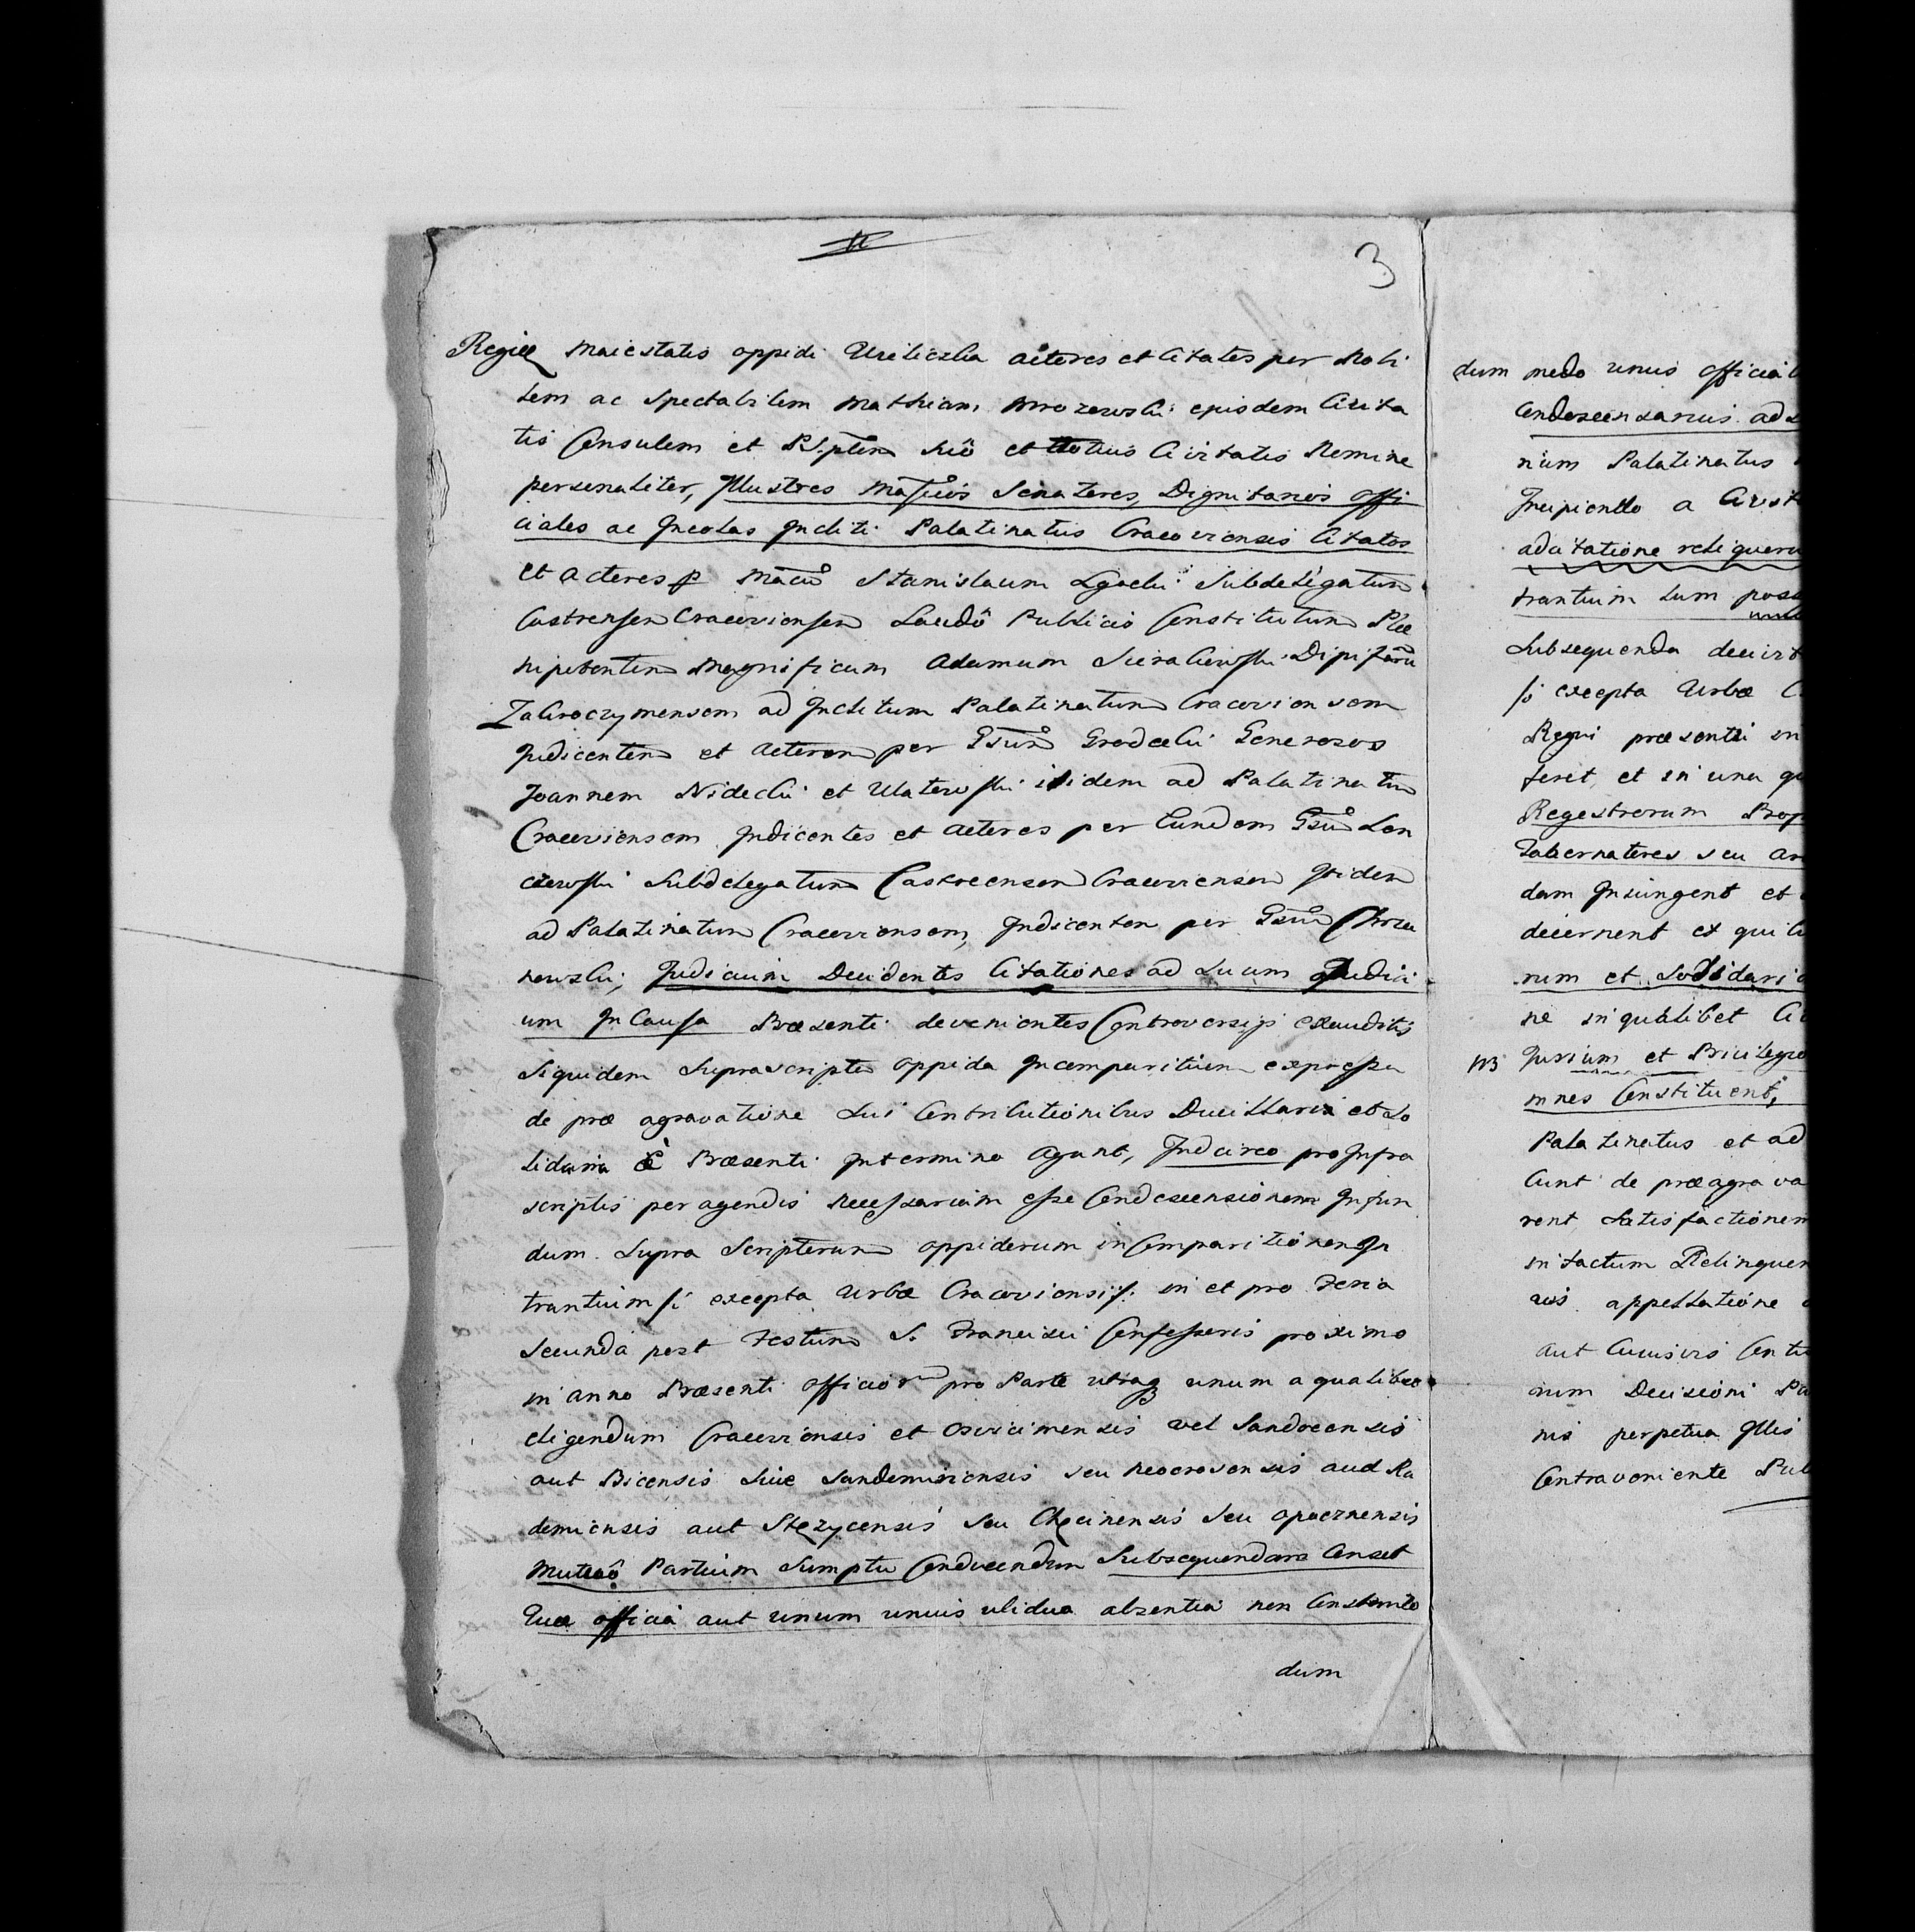 3
Regiæ Maiestatis oppidi Wieliczka actores et Citatos per Nobi
lem ac Spectabilem Mathiam Mrozowski ejusdem Civita
tis Consulem et suô et totius Civitatis Nomine
personaliter, Illustres Magficos Senatores, Dignitarios offi
ciales ac Incolas Incliti Palatinatus Cracoviensis Citatos
et actores p Magcum Stanislaum Lgocki Subdelegatum
Castrensem Cracoviensem Laudô Publico Constitutum Ple
nipotentem Magnificum Adamum Sierakowski
Zakroczymensem ad Inclitum Palatinatum Cracoviensem
Indicentem et actorem per Gsum Grodecki Generosos
Joannem Nidecki et Watowski itidem ad Palatinatum
Cracoviensem Indicentes et actores per Eundem Gsum Lon
czewski Subdelegatum Castrensem Cracoviensem Itidem
ad Palatinatum Cracoviensem, Indicentem per Gsum Chrza
nowski; Judicium Decidentes Citationes ad Suum Judici
um In Causa Præsenti devenientes Controversijs exauditis
Siquidem Suprascripta oppida Incomparitium expressa
de præ agravatione Sui Contributionibus Ducillaria et So
lidaria è Præsenti Intermino Agunt, Indcirco pro Infra
scriptis peragendis necessariam esse Condescensionem In fun
dum Supra Scriptorum oppidorum in Comparitionem In
trantium si excepta Urbæ Cracoviensis in et pro Feria
Secunda post Festum S. Francisci Confessoris proximo
in anno Præsenti officiorum pro Parte utraq unum a qualibet
eligendum Cracoviensis et Osvicimensis vel Sandecensis
aut Biecensis Sive Sandomiriensis seu neocrosensis aud Ra
domiensis aut Stęzycensis seu Chęcinensis seu opocznensis
Mutuô Partium Sumptu Conducendum Subsequendam Censet
Quæ officia aut unum unius ulidua absentia non Constanto
dum
dum modo unius
Condescensarius
num Palatinatus
Incipiendo a
adcitatione
trantium tum
Subsequenda
si excepta Urbæ
Regni præsenti in
feret, et in una
Regestrorum
Tabernatores seu
dam Insuingent et
decernent et
num et Solidari
ne in qualibet
NB Jurium et
mnes Constituent,
Palatinatus et ad
Cunt de præagrava
rent Satisfactionem
in factum
vis appellatione
aut Cuiusvis
num Decisioni
nis perpetua Illis
Contraveniente